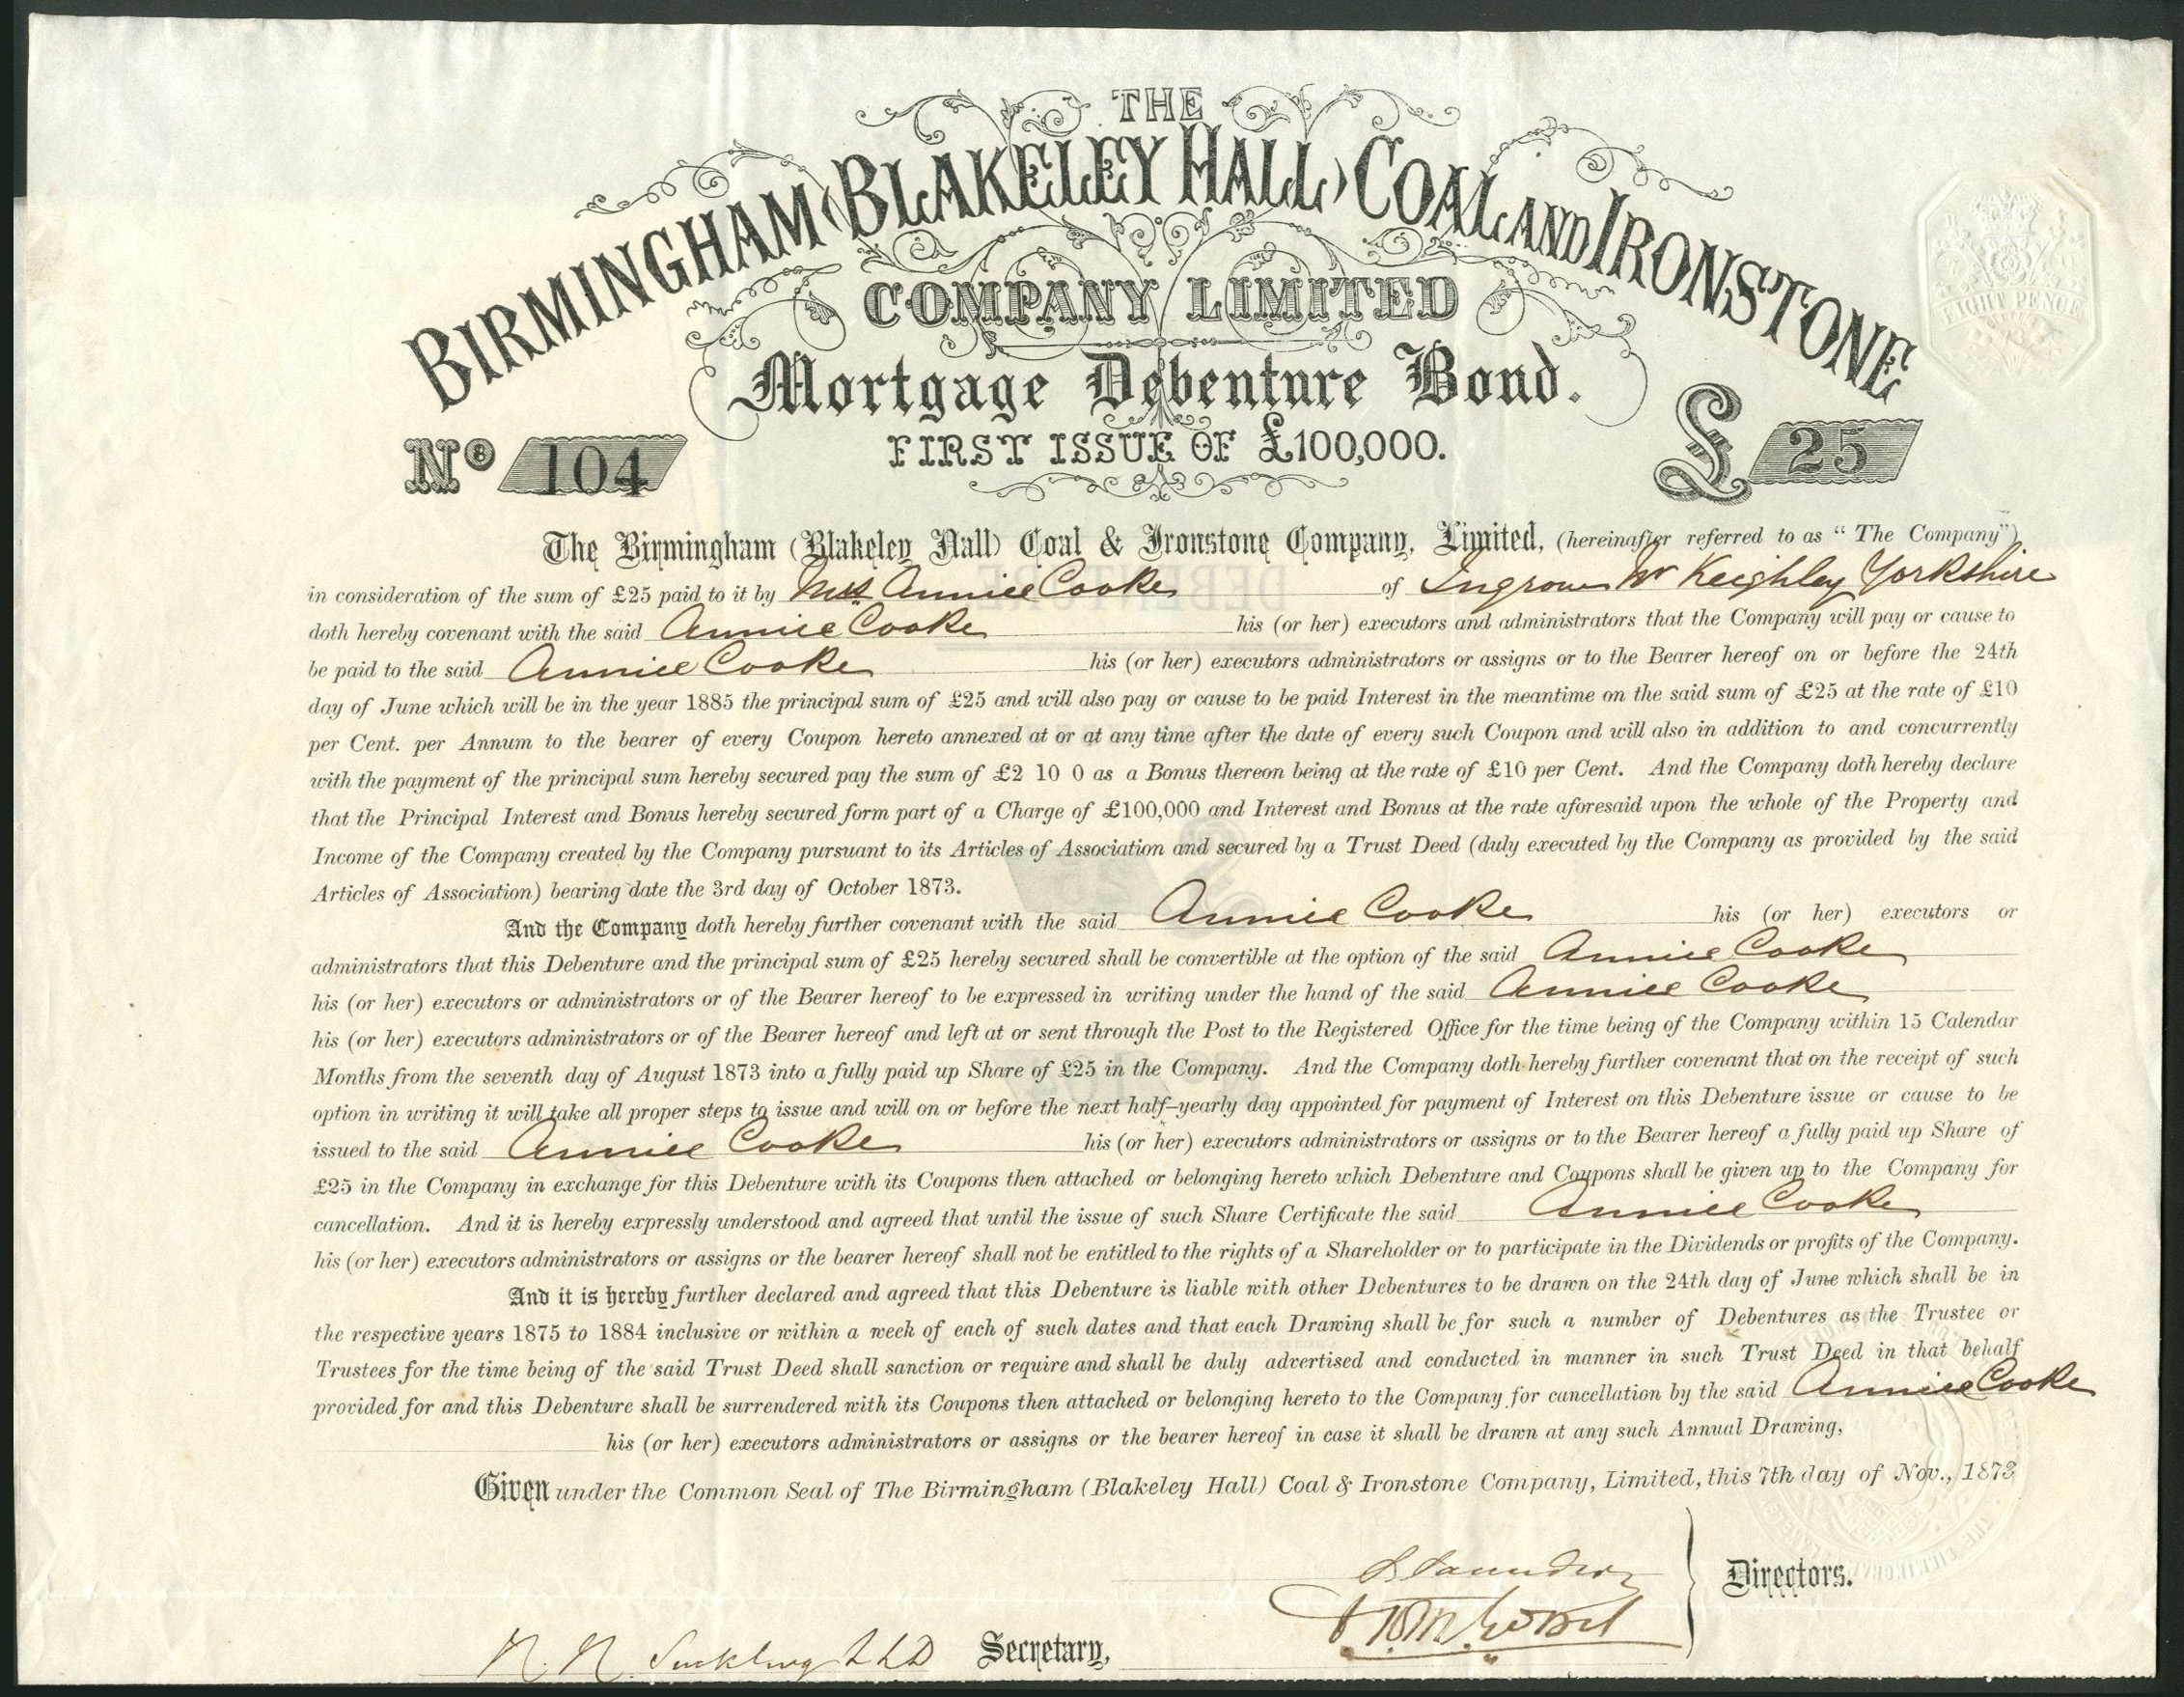 THE
BIRMINGHAM (BLAKELEY HALL) COAL AND IRONSTONE
COMPANY LIMITED
EIGHT PENCE
Mortgage Debenture Bond.
FIRST ISSUE OF £100,000.
No 104
£ 25
The Birmingham (Blakeley Hall) Coal & Ironstone Company, Limited, (hereinafter referred to as "The Company")
in consideration of the sum of £25 paid to it by Annie Cooke of Ingrow Nr Keighley Yorkshire
doth hereby covenant with the said Annie Cooke his (or her) executors and administrators that the Company will pay or cause to
be paid to the said Annie Cooke his (or her) executors administrators or assigns or to the Bearer hereof on or before the 24th
day of June which will be in the year 1885 the principal sum of £25 and will also pay or cause to be paid Interest in the meantime on the said sum of £25 at the rate of £10
per Cent. per Annum to the bearer of every Coupon hereto annexed at or at any time after the date of every such Coupon and will also in addition to and concurrently
with the payment of the principal sum hereby secured pay the sum of £2 10 0 as a Bonus thereon being at the rate of £10 per Cent. And the Company doth hereby declare
that the Principal Interest and Bonus hereby secured form part of a Charge of £100,000 and Interest and Bonus at the rate aforesaid upon the whole of the Property and
Income of the Company created by the Company pursuant to its Articles of Association and secured by a Trust Deed (duly executed by the Company as provided by the said
Articles of Association) bearing date the 3rd day of October 1873.
And the Company doth hereby further covenant with the said Annie Cooke his (or her) executors or
administrators that this Debenture and the principal sum of £25 hereby secured shall be convertible at the option of the said Annie Cooke
his (or her) executors or administrators or of the Bearer hereof to be expressed in writing under the hand of the said Annie Cooke
his (or her) executors administrators or of the Bearer hereof and left at or sent through the Post to the Registered Office for the time being of the Company within 15 Calendar
Months from the seventh day of August 1873 into a fully paid up Share of £25 in the Company. And the Company doth hereby further covenant that on the receipt of such
option in writing it will take all proper steps to issue and will on or before the next half-yearly day appointed for payment of Interest on this Debenture issue or cause to be
issued to the said Annie Cooke his (or her) executors administrators or assigns or to the Bearer hereof a fully paid up Share of
£25 in the Company in exchange for this Debenture with its Coupons then attached or belonging hereto which Debenture and Coupons shall be given up to the Company for
cancellation. And it is hereby expressly understood and agreed that until the issue of such Share Certificate the said Annie Cooke
his (or her) executors administrators or assigns or the bearer hereof shall not be entitled to the rights of a Shareholder or to participate in the Dividends or profits of the Company.
And it is hereby further declared and agreed that this Debenture is liable with other Debentures to be drawn on the 24th day of June which shall be in
the respective years 1875 to 1884 inclusive or within a week of each of such dates and that each Drawing shall be for such a number of Debentures as the Trustee or
Trustees for the time being of the said Trust Deed shall sanction or require and shall be duly advertised and conducted in manner in such Trust Deed in that behalf
provided for and this Debenture shall be surrendered with its Coupons then attached or belonging hereto to the Company for cancellation by the said Annie Cooke
his (or her) executors administrators or assigns or the bearer hereof in case it shall be drawn at any such Annual Drawing,
Given under the Common Seal of The Birmingham (Blakeley Hall) Coal & Ironstone Company, Limited, this 7th day of Nov., 1873
Saunders
Directors.
N. N. Suckling LLD Secretary,